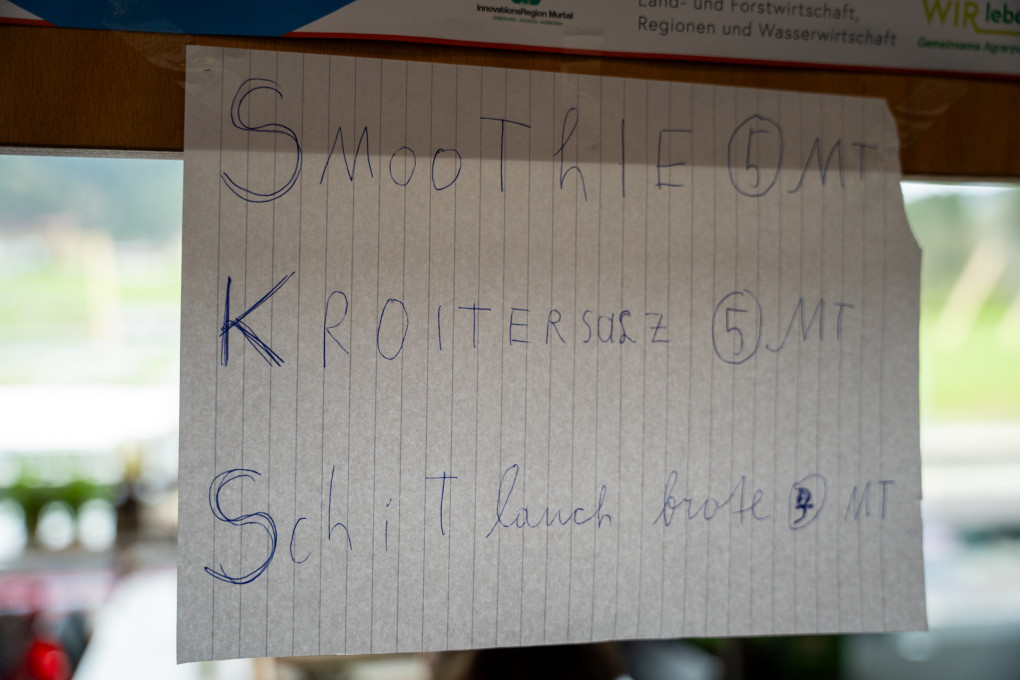 InnovationsRegion Murtal
Land- und Forstwirtschaft,
Regionen und Wasserwirtschaft
WIR lebe
Gemeinsame Agrarpo
SMOOThIE 5 MT
KROITERSALZ 5 MT
SchiT lauch brote MT